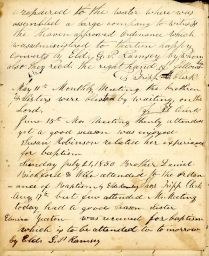 repaired to the water where was
assembled a large company to witness
the Heaven approved ordinance which
was administered to thirteen happy
converts by Elder G. P. Ramsey by whom
also they received the right hand of fellowship
G. Tripp Clerk
May 11th Monthly Meeting the brethren
& sisters were blessed by waiting on the
Lord.
June 15th Mon Meeting thinly attended
yet a good season was enjoyed
Susan Robinson related her experience
for baptism
Sunday July 21, 1850 Brother Daniel
Bickford & Wife attended to the ordin-
ance of Baptism, by Elder Tripp Clerk
Aug 17th but few attended Mon Meeting
today had a good season sister
Eunice Yeaton was received for baptism
which is to be attended to to morrow
by Elder G. P. Ramsey